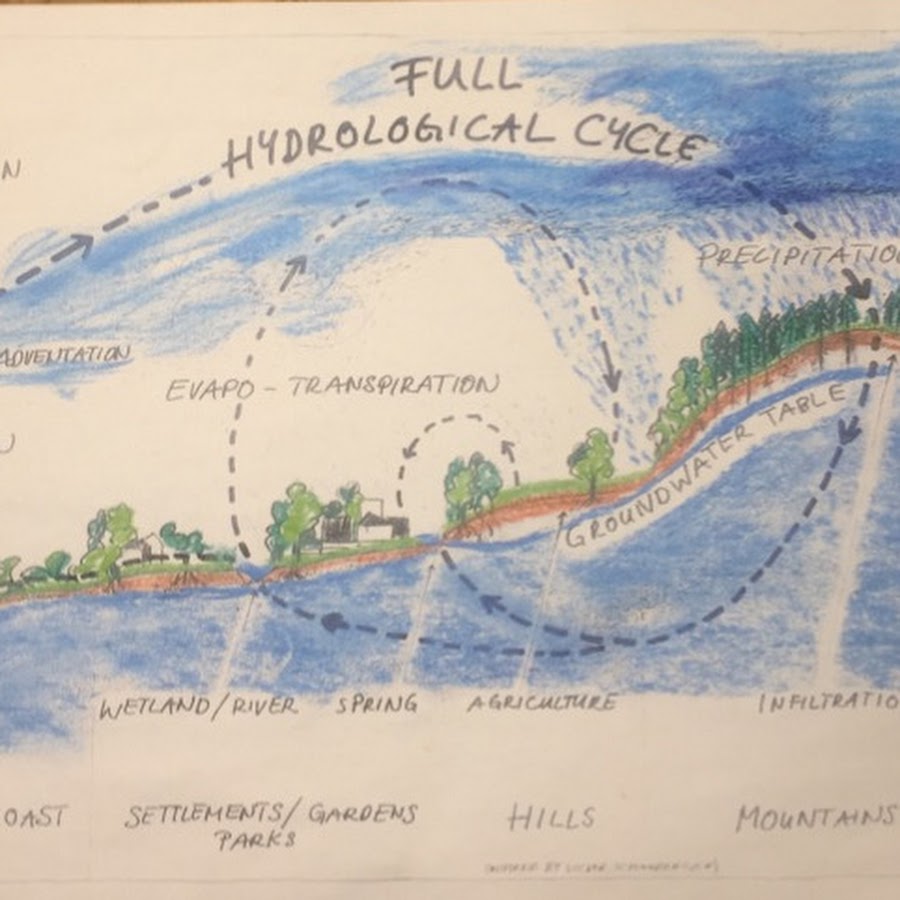 FULL
HYDROLOGICAL CYCLE
N
PRECIPITATIO
ADVENTATION
EVAPO - TRANSPIRATION
GROUNDWATER TABLE
WETLAND/RIVER SPRING AGRICULTURE INFILTRATIO
OAST SETTLEMENTS/GARDENS HILLS MOUNTAINS
PARKS